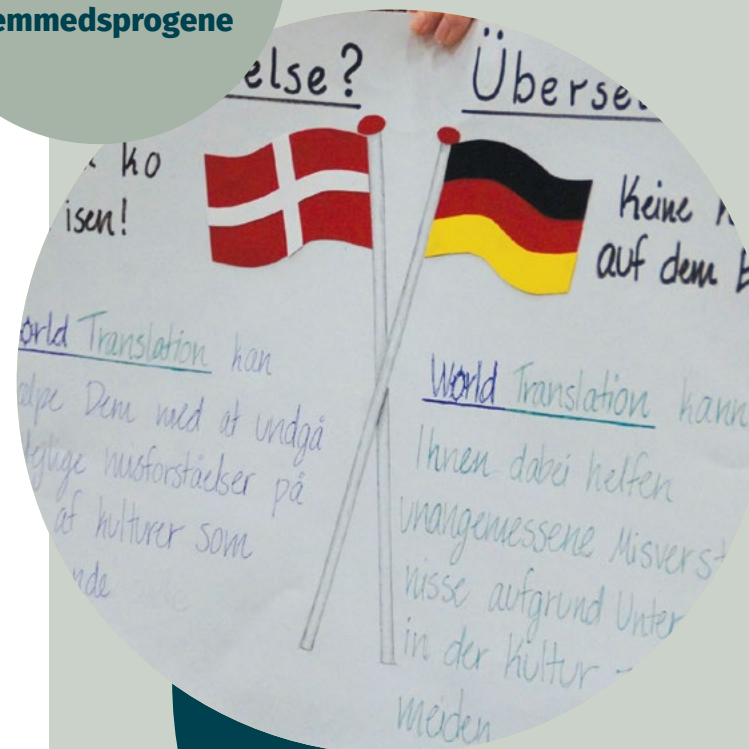 emmedsprogene
else?
ko
isen!
orld Translation kan
Dem med at undgå
misforståelser på
af kulturer som
nde
Überse
Keine
auf dem
World Translation kann
Ihnen dabei helfen
unangemessene Misverst
nisse aufgrund Unter
in der Kultur
meiden